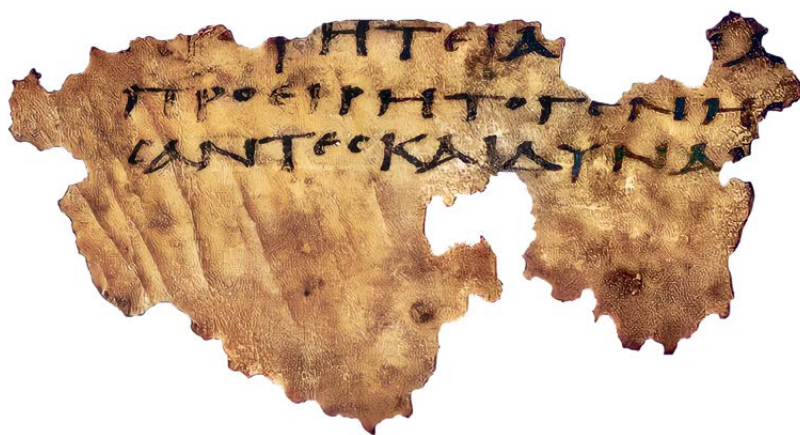 ΡΗΤΕΙΑ
ΠΡΟΕΙΡΗΤΟΓΕΝΗ
ϹΑΝΤΕϹΚΑΙΔΥΝΑϹ